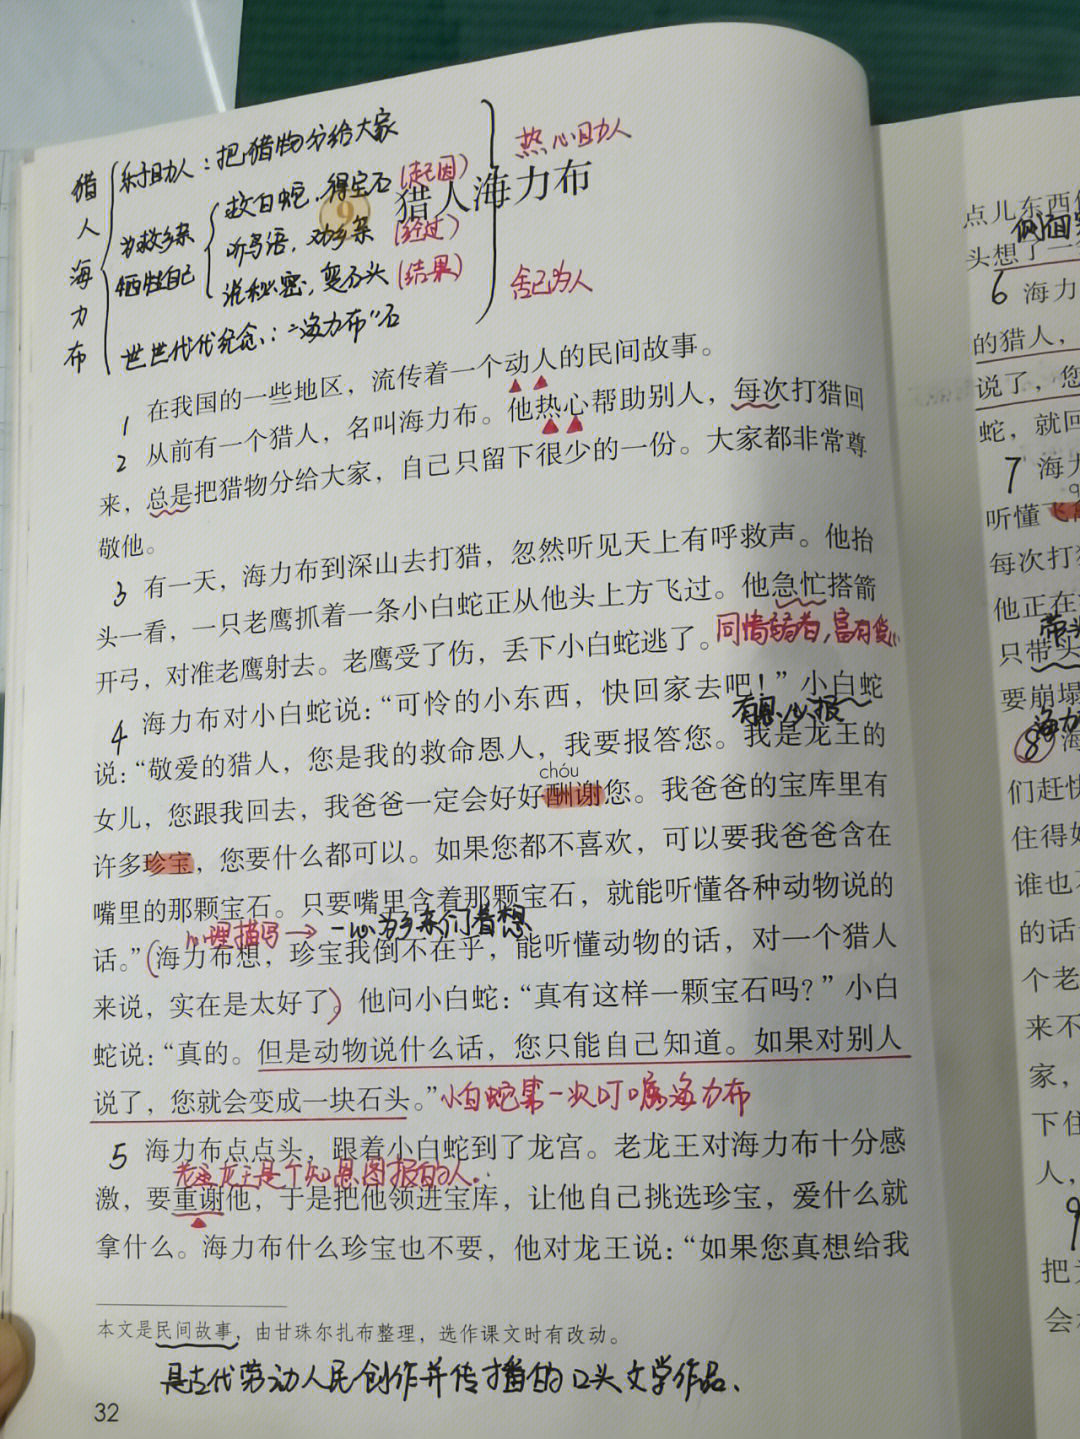 猎人海力布
乐于助人：把猎物分给大家
为救乡亲
牺牲自己
救白蛇，得宝石(起因)
听鸟语，劝乡亲(经过)
说秘密，变石头(结果)
世世代代纪念："海力布"石
热心助人
舍己为人
9 猎人海力布
1 在我国的一些地区，流传着一个动人的民间故事。
2 从前有一个猎人，名叫海力布。他热心帮助别人，每次打猎回
来，总是把猎物分给大家，自己只留下很少的一份。大家都非常尊
敬他。
3 有一天，海力布到深山去打猎，忽然听见天上有呼救声。他抬
头一看，一只老鹰抓着一条小白蛇正从他头上方飞过。他急忙搭箭
开弓，对准老鹰射去。老鹰受了伤，丢下小白蛇逃了。
同情弱者，富有爱心
4 海力布对小白蛇说：“可怜的小东西，快回家去吧！”小白蛇
有恩必报
说：“敬爱的猎人，您是我的救命恩人，我要报答您。我是龙王的
chóu
女儿，您跟我回去，我爸爸一定会好好酬谢您。我爸爸的宝库里有
许多珍宝，您要什么都可以。如果您都不喜欢，可以要我爸爸含在
嘴里的那颗宝石。只要嘴里含着那颗宝石，就能听懂各种动物说的
心理描写→一心为乡亲们着想
话。”(海力布想，珍宝我倒不在乎，能听懂动物的话，对一个猎人
来说，实在是太好了)他问小白蛇：“真有这样一颗宝石吗？”小白
蛇说：“真的。但是动物说什么话，您只能自己知道。如果对别人
说了，您就会变成一块石头。”小白蛇第一次叮嘱海力布
5 海力布点点头，跟着小白蛇到了龙宫。老龙王对海力布十分感
龙王是个知恩图报的人.
激，要重谢他，于是把他领进宝库，让他自己挑选珍宝，爱什么就
拿什么。海力布什么珍宝也不要，他对龙王说：“如果您真想给我
本文是民间故事，由甘珠尔扎布整理，选作课文时有改动。
是古代劳动人民创作并传播的口头文学作品、
32
点儿东西
侧面
头想了一
6 海力
的猎人，
说了，您
蛇，就回
7 海力
听懂飞
每次打
他正在
带头
只带头
要崩塌
海力
8 海
们赶快
住得好
谁也
的话
个老
来不
家，
下住
人，
9
把
会